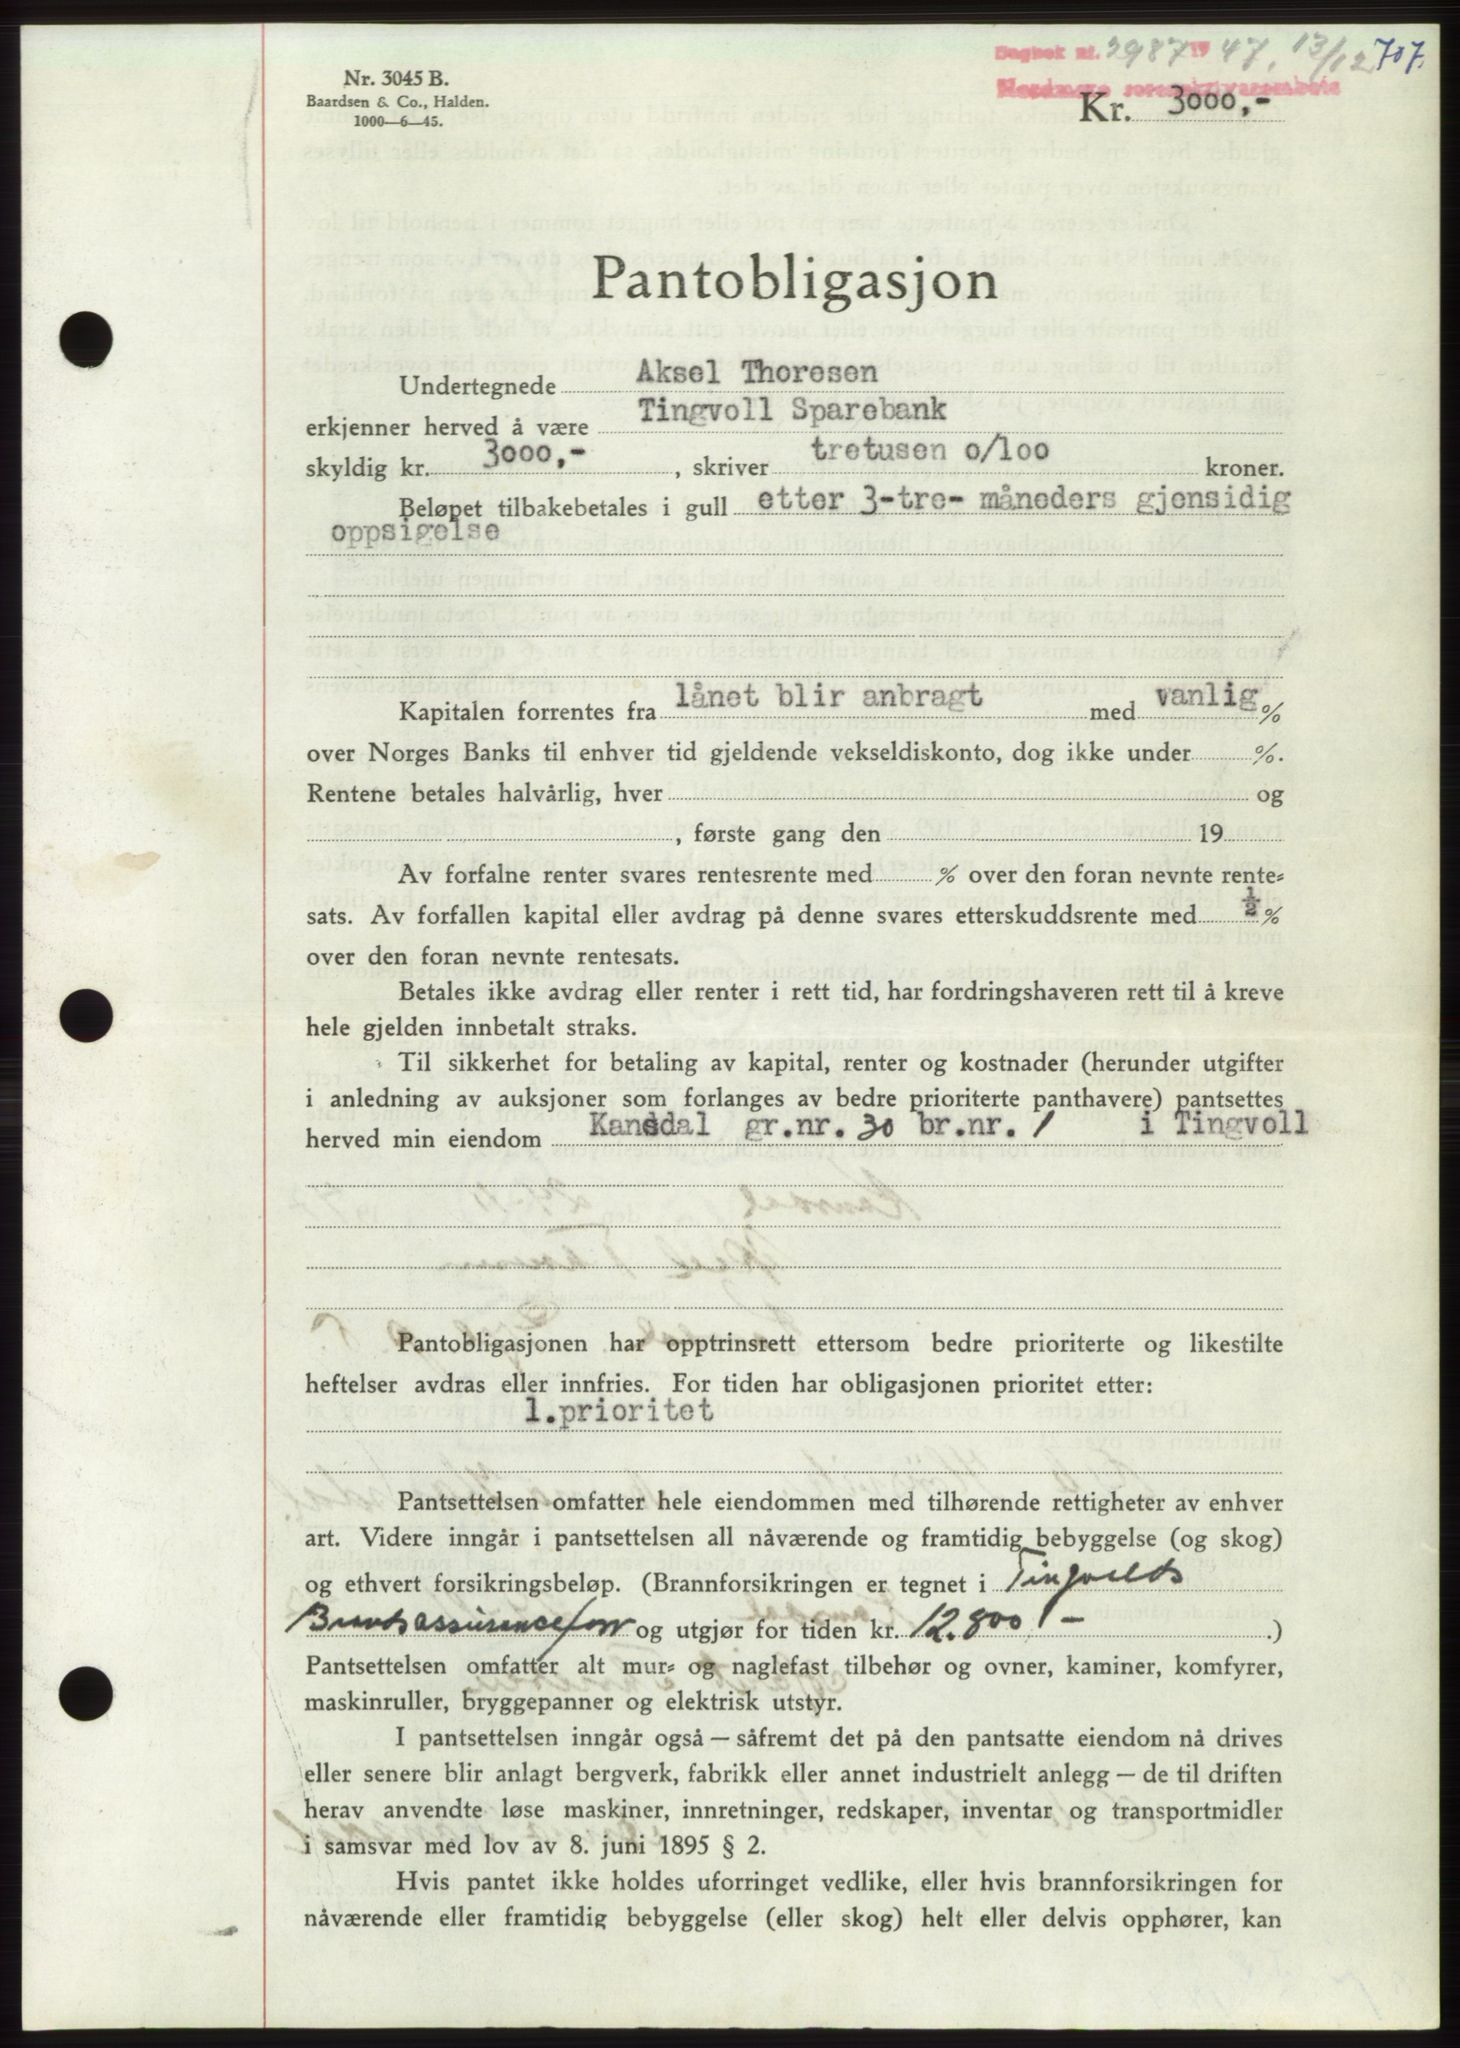 Dagbok nr. 2987 1947, 13/12 707.
Nordmøre sorenskriverembete
Nr. 3045 B.
Baardsen & Co., Halden.
1000—6—45.
Kr. 3000,-
Pantobligasjon
Undertegnede Aksel Thoresen
erkjenner herved å være Tingvoll Sparebank
skyldig kr. 3000,- , skriver tretusen o/loo kroner.
Beløpet tilbakebetales i gull etter 3-tre- måneders gjensidig
oppsigelse
Kapitalen forrentes fra lånet blir anbragt med vanlig %
over Norges Banks til enhver tid gjeldende vekseldiskonto, dog ikke under %.
Rentene betales halvårlig, hver og
, første gang den 19
Av forfalne renter svares rentesrente med % over den foran nevnte rente=
sats. Av forfallen kapital eller avdrag på denne svares etterskuddsrente med ½ %
over den foran nevnte rentesats.
Betales ikke avdrag eller renter i rett tid, har fordringshaveren rett til å kreve
hele gjelden innbetalt straks.
Til sikkerhet for betaling av kapital, renter og kostnader (herunder utgifter
i anledning av auksjoner som forlanges av bedre prioriterte panthavere) pantsettes
herved min eiendom Kanddal gr.nr. 30 br.nr. 1 i Tingvoll
Pantobligasjonen har opptrinsrett ettersom bedre prioriterte og likestilte
heftelser avdras eller innfries. For tiden har obligasjonen prioritet etter:
1.prioritet
Pantsettelsen omfatter hele eiendommen med tilhørende rettigheter av enhver
art. Videre inngår i pantsettelsen all nåværende og framtidig bebyggelse (og skog)
og ethvert forsikringsbeløp. (Brannforsikringen er tegnet i Tingvolds
Brandassuranceforr og utgjør for tiden kr. 12.800 - .)
Pantsettelsen omfatter alt mur= og naglefast tilbehør og ovner, kaminer, komfyrer,
maskinruller, bryggepanner og elektrisk utstyr.
I pantsettelsen inngår også — såfremt det på den pantsatte eiendom nå drives
eller senere blir anlagt bergverk, fabrikk eller annet industrielt anlegg — de til driften
herav anvendte løse maskiner, innretninger, redskaper, inventar og transportmidler
i samsvar med lov av 8. juni 1895 § 2.
Hvis pantet ikke holdes uforringet vedlike, eller hvis brannforsikringen for
nåværende eller framtidig bebyggelse (eller skog) helt eller delvis opphører, kan